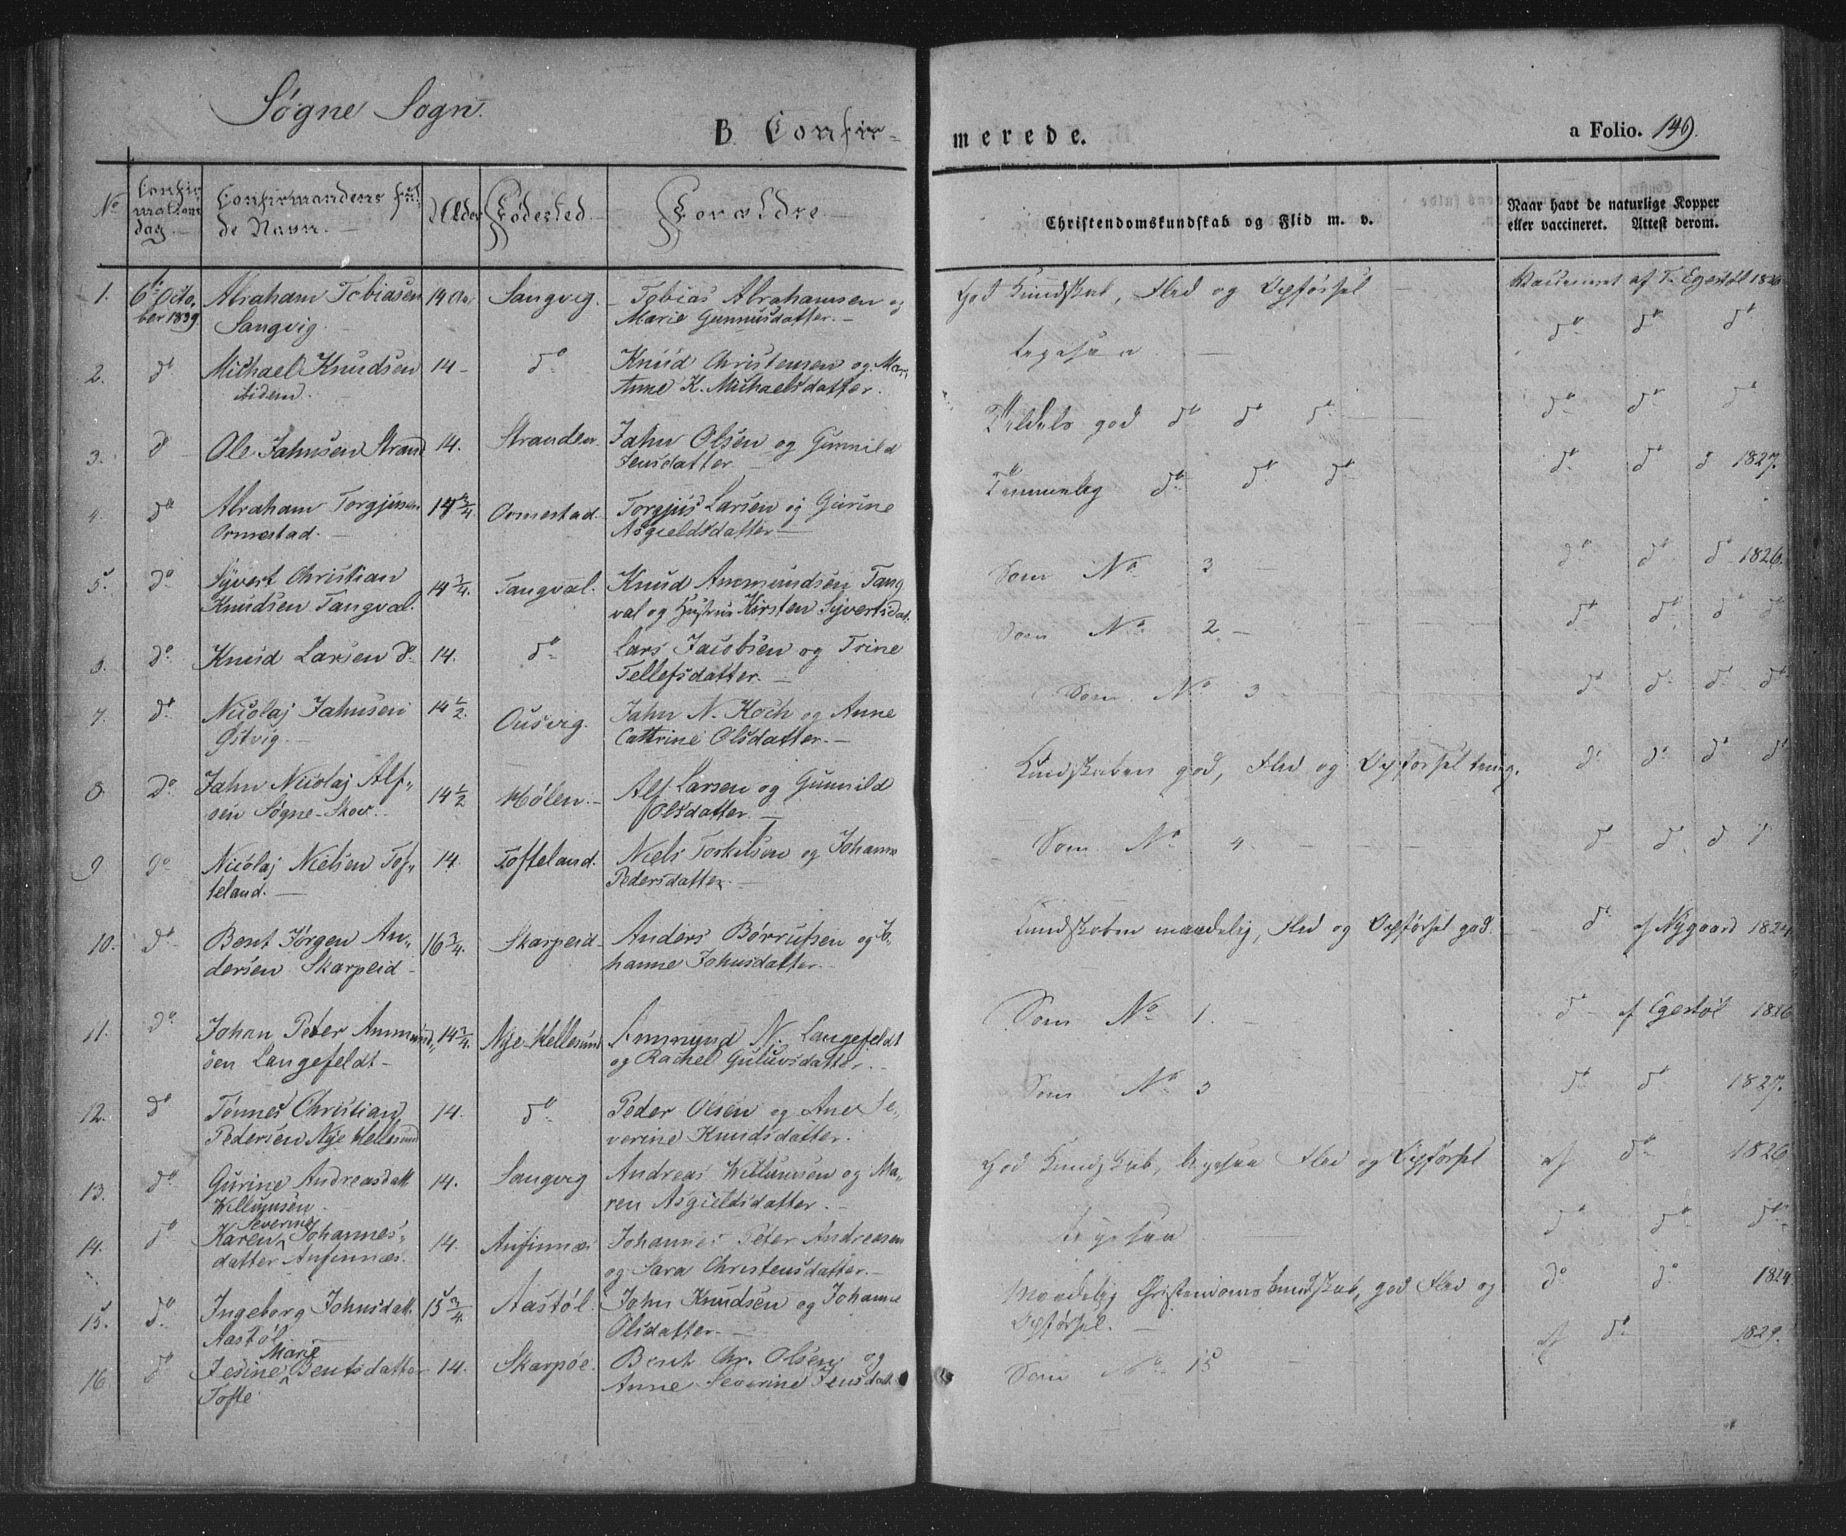 Søgne Sogn.
B. Confir-
merede.
a Folio. 149.
No
Confir
mations
dag.
Confirmandens ful
de Navn.
Alder
Fødested.
Forældre
Christendomskundskab og Flid m. v.
Naar havt de naturlige Kopper
eller vaccineret. Attest derom.
1. 6te Octo Abraham Tobiasen 14 Aar Sangvig. Tobias Abrahamsen og God Kundskab, Flid og Opførsel Vaccineret af T. Egestøl 1826
ber 1839 Sangvig. Marie Gunnusdatter.
2. do Michael Knudsen 14 do Knud Christensen og Mar do do do
ibidem. Anne K. Michaelsdatter.
3. do Ole Jahnsen Strand 14. Stranden. Jahn Olsen og Gunnild god do do do do do do
Jensdatter
4. do Abraham Torgjusen 14 3/4 Ormestad. Torgjus Larsen og Gurine Temmelig do do do do do do 1827.
Ormestad. Asgieldsdatter
5. do Syvert Christian 14 3/4. Tangval. Knud Ammundsen Tang Som No 3 do do do 1826.
Knudsen Tangval. val og Hustrue Kirsten Syvertsdat.
6. do Knud Larsen do 14. do Lars Jacobsen og Trine Som No 2 do do do do
Tellefsdatter.
7. do Nicolaj Jahnsen 14 1/2. Ousvig. Jahn N. Koch og Anne Som No 3 do do do do
Østvig. Cathrine Olsdatter.
8. do Jahn Nicolaj Alf- 14 1/2 Hølen. Alf Larsen og Gunnild Kundskaben god, Flid og Opførsel do do do do
sen Søgne-Skov. Olsdatter.
9 do Nicolaj Nielsen Tof- 14. Tofteland. Niels Torkelsen og Johanne Som No 4. do do do do
teland. Pedersdatter.
10. do Bent Jørgen An- 16 3/4. Skarpeid Anders Børrufsen og Jo- Kundskaben maadelig, Flid og Opførsel god. do af Nygaard 1824
dersen Skarpeid hanne Johnsdatter.
11. do Johan Peter Ammund 14 3/4. Nye-Hellesund Ammund N. Langefeldt Som No 1. do af Egestøl 1826
sen Langefeldt og Rachel Guluvsdatter.
12. do Tønnes Christian 14. do Peder Olsen og Ane Se- Som No 3 do do 1827.
Pedersen Nye Hellesund verine Knudsdatter.
13. do Gurine Andreasdatt 14. Sangvig Andreas Willumsen og Ma- God Kundskab, Flid og Opførsel af do 1826
Willumsen. ren Asgieldsdatter.
14. do Karen Severine Johannes- 14. Anfinnæs Johannes Peter Andreasen do do do
datter Anfinnæs. og Sara Christensdatter.
15. do Ingeborg Johnsdatt. 15 3/4. Aastøl. John Knudsen og Johanne Maadelig Christendomskundskab, god Flid og do do 1824
Aastøl Olsdatter. Opførsel.
16 do Jesine Marie Bentsdatter 14. Skarpøe. Bent Chr. Olsen og Som No 15 af do 1829.
Tofte Anne Severine Jensdatt